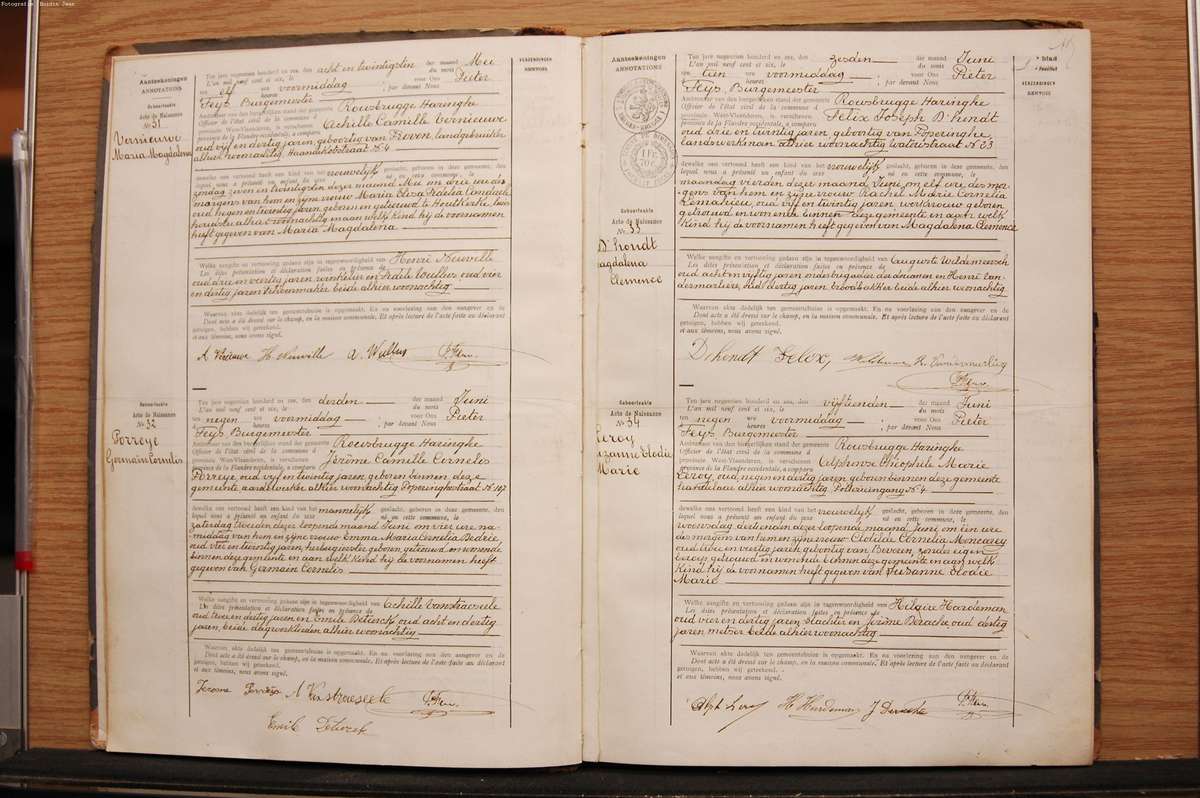 Fotografie: Boidin Jean
Aanteekeningen
ANNOTATIONS
VERZENDINGEN
RENVOIS
Geboorteakte
Acte de Naissance
N° 31
Vernieuwe
Maria Magdalena
Ten jare negentien honderd en zes, den acht en twintigsten der maand Mei
L'an mil neuf cent et six, le du mois
ten elf ure voormiddag ; voor Ons Pieter
heures ; par devant Nous
Feys Burgemeester
Ambtenaar van den burgerlijken stand der gemeente Rousbrugge Haringhe
Officier de l'état civil de la commune d
provincie West-Vlaanderen, is verschenen Achille Camille Vernieuwe
province de la Flandre occidentale, a comparu
oud vijf en dertig jaren, geboortig van landgebruiker
alhier woonachtig, Haandekotstraat N° 4
dewelke ons vertoond heeft een kind van het vrouwelijk geslacht, geboren in deze gemeente, den
lequel nous a présenté un enfant du sexe né en cette commune, le
zondag zeven en twintigsten dezer maand Mei om drie ure des
margens van hem en zijne vrouw Maria Eliza
oud negen en twintig jaren, geboren en getrouwd te Houtkerke,
alhier woonachtig en aan welk kind hij de voornamen
heeft gegeven van Maria Magdalena
Welke aangifte en vertooning gedaan zijn in tegenwoordigheid van Henri Neuville
Les dites présentation et déclaration faites en présence de
oud drie en veertig jaren, winkelier en oud vier
en dertig jaren schoenmaker beide alhier woonachtig
Waarvan akte dadelijk ten gemeentehuize is opgemaakt. En na voorlezing aan den aangever en de
Dont acte a été dressé sur le champ, en la maison communale. Et après lecture de l'acte faite au déclarant
getuigen, hebben wij geteekend.
et aux témoins, nous avons signé.
A Vernieuwe H. Neuville A. Wullus P. Feys
Geboorteakte
Acte de Naissance
N° 32
Porreye
Germain Cornelis
Ten jare negentien honderd en zes, den derden der maand Juni
L'an mil neuf cent et six, le du mois
ten negen ure voormiddag ; voor Ons Pieter
à heures ; par devant Nous
Feys Burgemeester
Ambtenaar van den burgerlijken stand der gemeente Rousbrugge Haringhe
Officier de l'état civil de la commune d
provincie West-Vlaanderen, is verschenen Jérôme Camille Cornelis
province de la Flandre occidentale, a comparu
Porreye oud vijf en twintig jaren, geboren binnen deze
gemeente aardewerker alhier woonachtig Poperinghestraat N° 107
dewelke ons vertoond heeft een kind van het mannelijk geslacht, geboren in deze gemeente, den
lequel nous a présenté un enfant du sexe né en cette commune, le
zaterdag tweeden dezer loopende maand Juni om vier ure na-
middag van hem en zijne vrouw Emma Maria Cornelia Bedrie,
oud vier en twintig jaren, herbergierster geboren, getrouwd en wonende
binnen deze gemeente en aan welk kind hij de voornamen heeft
gegeven van Germain Cornelis
Welke aangifte en vertooning gedaan zijn in tegenwoordigheid van Achille Vanstraseele
Les dites présentation et déclaration faites en présence de
oud twee en dertig jaren en Emile Detierck oud acht en dertig
jaren, beide dagwerklieden alhier woonachtig
Waarvan akte dadelijk ten gemeentehuize is opgemaakt. En na voorlezing aan den aangever en de
Dont acte a été dressé sur le champ, en la maison communale. Et après lecture de l'acte faite au déclarant
getuigen, hebben wij geteekend.
et aux témoins, nous avons signé.
Jerome Porreye A Vanstraeseele P. Feys
Emil
Aanteekeningen
ANNOTATIONS
VERZENDINGEN
RENVOIS
Geboorteakte
Acte de Naissance
N° 33
D'hondt
Magdalena
Clemence
Ten jare negentien honderd en zes, den zesden der maand Juni
L'an mil neuf cent et six, le du mois
ten tien ure voormiddag ; voor Ons Pieter
heures ; par devant Nous
Feys, Burgemeester
Ambtenaar van den burgerlijken stand der gemeente Rousbrugge Haringhe
Officier de l'état civil de la commune d
provincie West-Vlaanderen, is verschenen Felix Joseph D'hondt
province de la Flandre occidentale, a comparu
oud drie en twintig jaren, geboortig van Poperinghe,
landwerksman alhier woonachtig Waterstraat N° 23
dewelke ons vertoond heeft een kind van het vrouwelijk geslacht, geboren in deze gemeente, den
lequel nous a présenté un enfant du sexe né en cette commune, le
maandag vierden dezer maand Juni, om elf ure des mor-
gens van hem en zijne vrouw Rachel Marie Cornelia
Lemahieu, oud vijf en twintig jaren, werkvrouw geboren
getrouwd en wonende binnen deze gemeente en aan welk
kind hij de voornamen heeft gegeven van Magdalena Clemence
Welke aangifte en vertooning gedaan zijn in tegenwoordigheid van Auguste Wildemeersch
Les dites présentation et déclaration faites en présence de
oud acht en vijftig jaren onderbrigadier der douanen en Henri Van-
dermarliere, oud dertig jaren broodbakker beide alhier woonachtig
Waarvan akte dadelijk ten gemeentehuize is opgemaakt. En na voorlezing aan den aangever en de
Dont acte a été dressé sur le champ, en la maison communale. Et après lecture de l'acte faite au déclarant
getuigen, hebben wij geteekend.
et aux témoins, nous avons signé.
D'hondt Felix,
P. Feys
Geboorteakte
Acte de Naissance
N° 34
Leroy
Suzanne Elodie
Marie
Ten jare negentien honderd en zes, den vijftienden der maand Juni
L'an mil neuf cent et six, le du mois
ten negen ure voormiddag ; voor Ons Pieter
à heures ; par devant Nous
Feys Burgemeester
Ambtenaar van den burgerlijken stand der gemeente Rousbrugge Haringhe
Officier de l'état civil de la commune d
provincie West-Vlaanderen, is verschenen Alphonse Théophile Marie
province de la Flandre occidentale, a comparu
Leroy, oud negen en dertig jaren geboren binnen deze gemeente
alhier woonachtig N° 4
dewelke ons vertoond heeft een kind van het vrouwelijk geslacht, geboren in deze gemeente, den
lequel nous a présenté un enfant du sexe né en cette commune, le
woensdag dertienden dezer loopende maand Juni, om tien ure
des morgens van hem en zijne vrouw Clotilde Cornelia Monearey
oud twee en veertig jaren geboortig van Beveren, zonder eigen
beroep getrouwd en wonende binnen deze gemeente en aan welk
kind hij de voornamen heeft gegeven van Suzanne Elodie
Marie
Welke aangifte en vertooning gedaan zijn in tegenwoordigheid van Hilaire Hardeman
Les dites présentation et déclaration faites en présence de
oud vier en dertig jaren, slachter en Jérôme Deracke, oud dertig
jaren, metser beide alhier woonachtig
Waarvan akte dadelijk ten gemeentehuize is opgemaakt. En na voorlezing aan den aangever en de
Dont acte a été dressé sur le champ, en la maison communale. Et après lecture de l'acte faite au déclarant
getuigen, hebben wij geteekend.
et aux témoins, nous avons signé.
Alph Leroy H Hardeman J Deracke P. Feys